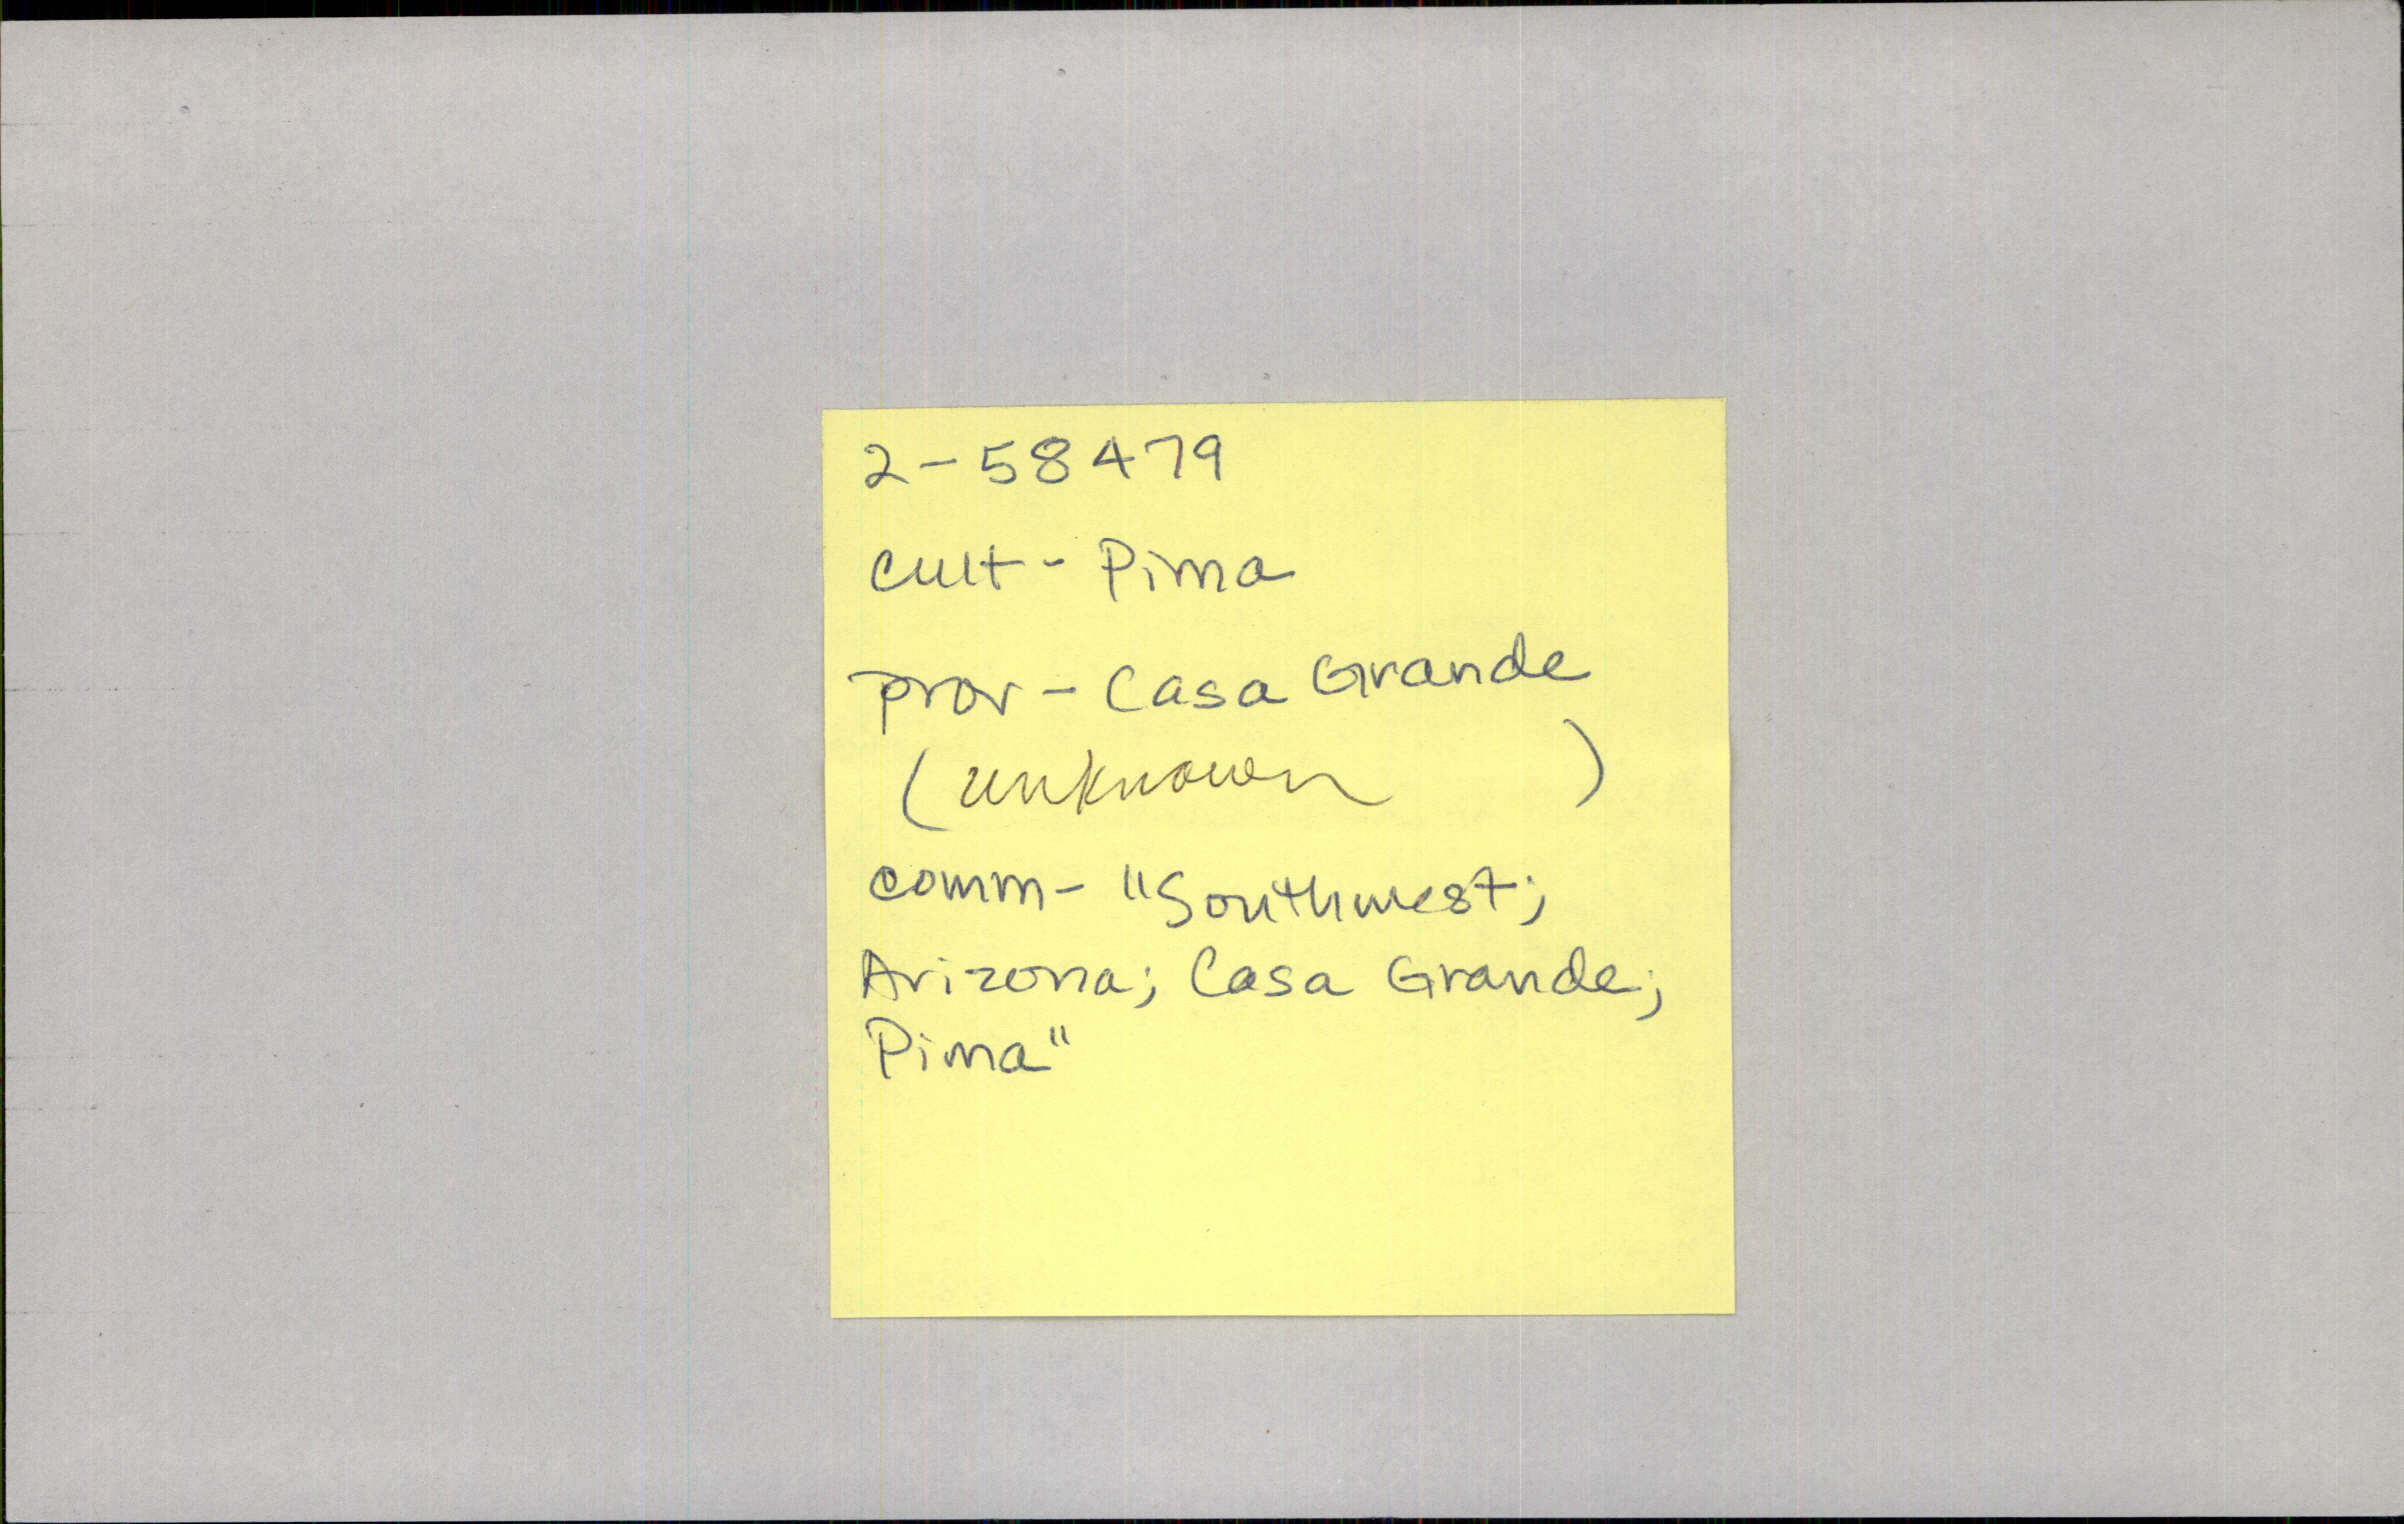 2-58479
cult- Pima
prov - Casa Grande
(unknown )
comm- "Southwest;
Arizona; Casa Grande;
Pima"